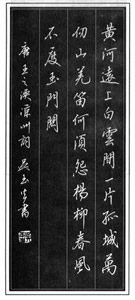 黃河遠上白雲間一片孤城萬
仞山羌笛何須怨楊柳春風
不度玉門關
唐王之渙涼州詞 吳玉 書